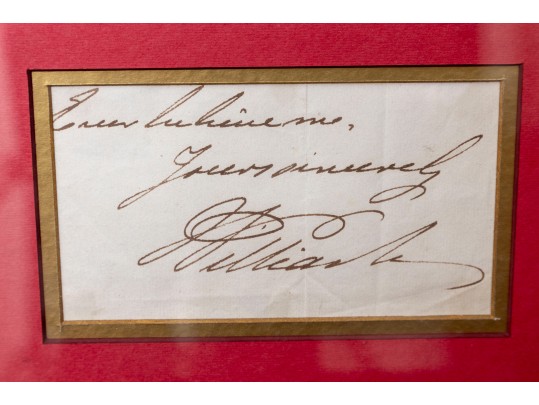 Ever believe me,
Yours sincerely
William